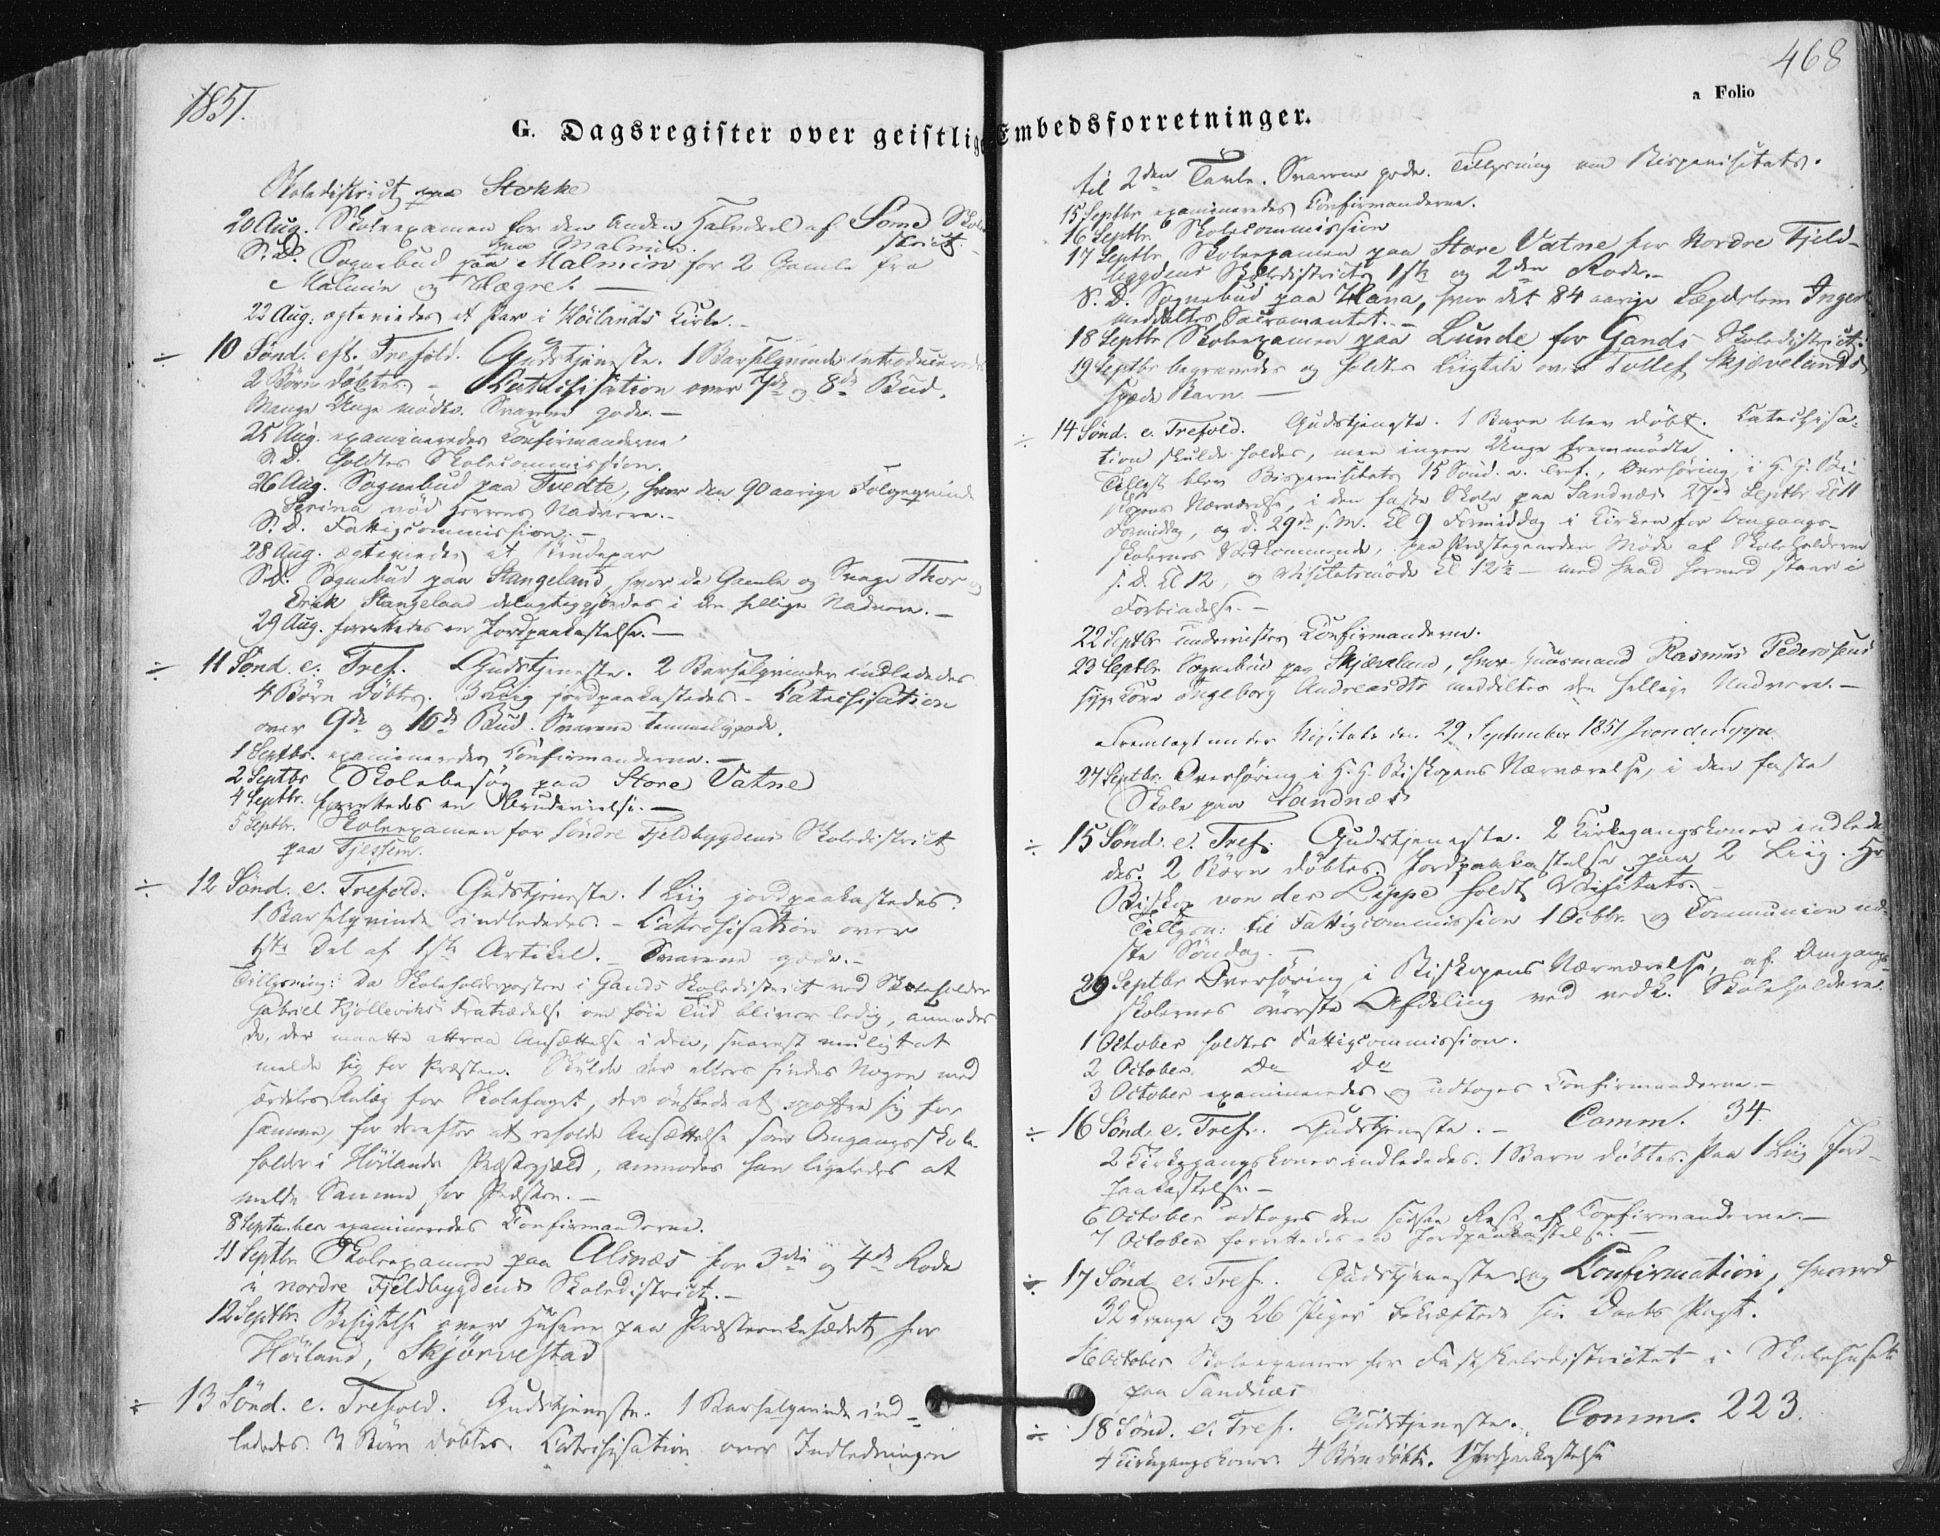 1851.
468
a Folio
G. Dagsregister over geistlige Embedsforretninger.
Skoledistrict paa Stokke
20 Aug. Skoleexamen for den anden Halvdeel af Somd Skole
district paa Malmin.
S. D. Sognebud paa Malmin for 2 Gamle fra
Malmin og Hægref. —
22 Aug. ægteviedes et Par i Höilands Kirke. —
÷ 10 Sönd. eft. Trefold. Gudstjeneste. 1 Barselqvinde introduceredes
2 Börn döbtes — Catechisation over 7de og 8de Bud.
Mange Unge mödte. Svarene gode. —
25 Aug. examineredes Confirmanderne
S. D. holdtes Skolecommission.
26 Aug. Sognebud paa Tvedte, hvor den 90 aarige Fölgeqvinde
Serina nöd Herrens Nadvere. —
S. D. Fattigcommission. —
28 Aug. ægteviedes et Brudepar
S. D. Sognebud paa Stangeland, hvor de Gamle og Svage Thor og
Erik Stangeland delagtiggjördes i den hellige Nadvere. —
29 Aug. forrettedes en Jordpaakastelse. —
÷ 11 Sönd. e. Tref. Gudstjeneste. 2 Barselqvinder indlededes
4 Börn döbtes. 3 Liig jordpaakastedes. — Catechisation
over 9de og 10de Bud. Svarene temmelig gode.
1 Septbr. examineredes Confirmanderne. —
2 Septbr Skolebesög paa Store Vatne
4 Septbr. forrettedes en Brudevielse. —
5 Septbr. Skoleexamen for Söndre Fjeldbygdens Skoledistrict
paa Fjessem.
÷ 12 Sönd. e. Trefold. Gudstjeneste. 1 Liig jordpaakastedes.
1 Barselqvinde indlededes. — Catechisation over
1ste Del af 1ste Artikel. — Svarene gode. —
Tillysning: Da Skoleholderposten i Gands Skoledistrict ved Skoleholder
Gabriel Kjölleviks Fratrædelse om föie Tid bliver ledig, anmodes
de, der maatte attraa Ansættelse i den, snarest muligt at
melde sig for Præsten. Skulde der ellers findes Nogen med
særdeles Anlæg for Skolefaget, der önskede at opoffre sig for
samme, for derefter at erholde Ansættelse som Omgangsskole-
holder i Höilands Præstegjæld, anmodes han ligeledes at
melde Samme for Præsten. —
8 September examineredes Confirmanderne.
11 Septbr Skoleexamen paa Alsnæs for 3die og 4de Rode
i nordre Fjeldbygdens Skoledistrict. —
12 Septbr. Besigtelse over Husene paa Præsteenkesædet for
Höiland, Skjörvestad
÷ 13 Sönd. e. Trefold. Gudstjeneste. 1 Barselqvinde ind-
lededes. 3 Börn döbtes. Catechisation over Indledningen
til 2den Tavle. Svarene gode. Tillysning om Bispevisitats.
15 Septbr examineredes Confirmanderne.
16 Septbr Skolecommission
17 Septbr Skoleexamen paa Store Vatne for Nordre Fjeld-
byggdens Skoledistricts 1ste og 2den Rode. —
S. D. Sognebud paa Hana, hvor det 84 aarige Lægdslem Inger
meddeltes Sacramentet. —
18 Septbr Skoleexamen paa Lunde for Gands Skoledistrict.
19 Septbr begravedes og holdtes Liigtale over Tollef Skjævelands
spæde Barn. —
÷ 14 Sönd. e. Trefold. Gudstjeneste. 1 Barn blev döbt. Catechisa-
tion skulde holdes, men ingen Unge fremmödte.
Tillyst blev Bispevisitats 15 Sönd. e. Tref., Overhöring i H. H. Bi-
skopens Nærværelse, i den faste Skole paa Sandnæs 27de Septbr Kl 11
Formiddag, og d. 29de s. M. Kl 9 Formiddag i Kirken for Omgangs-
skolernes Vedkommende, paa Præstegaarden Möde af Skoleholderne
s. D. Kl 12, og Visitatsmöde Kl 12½ — med hvad hermed staar i
Forbindelse. —
22 Septbr underviistes Confirmanderne.
23 Septbr Sognebud paa Skjæveland, hvor Huusmand Rasmus Pedersens
syge Kone Ingeborg Andreasdtr meddeltes den hellige Nadvere. —
Fremlagt under Visitats den 29 September 1851 J von der Lippe
27 Septbr. Overhöring i H. H. Biskopens Nærværelse, i den faste
Skole paa Sandnæs
÷ 15 Sönd. e. Tref. Gudstjeneste. 2 Kirkegangskoner indlede-
des. 2 Börn döbtes. Jordpaakastelse paa 2 Liig. Hr
Biskop von der Lippe holdt Visitats. —
Tillysn: til Fattigcommission 1 Octbr. og Communion næ-
ste Söndag. —
29 Septbr Overhöring i Biskopens Nærværelse, af Omgangs-
skolernes överste Afdeling ved vedk. Skoleholdere.
1 October holdtes Fattigcommission.
2 October Do Do
3 October examineredes og udtoges Confirmanderne. —
÷ 16 Sönd. e. Tref. Gudstjeneste. — Comm. 34.
2 Kirkegangskoner indlededes. 1 Barn döbtes. Paa 1 Liig Jord-
paakastelse. —
6 October udtoges den sidste Rest af Confirmanderne. —
7 October forrettedes en Jordpaakastelse. —
÷ 17 Sönd e. Tref. Gudstjeneste og Confirmation, hvorved
32 Drenge og 26 Piger bekræftede sin Daabs Pagt.
16 October Skoleexamen for Fasteskoledistrictet i Skolehuset
paa Sandnæs
÷ 18 Sönd. e. Tref. Gudstjeneste. Comm. 223.
4 Kirkegangskoner. 4 Börn döbte. 1 Jordpaakastelse